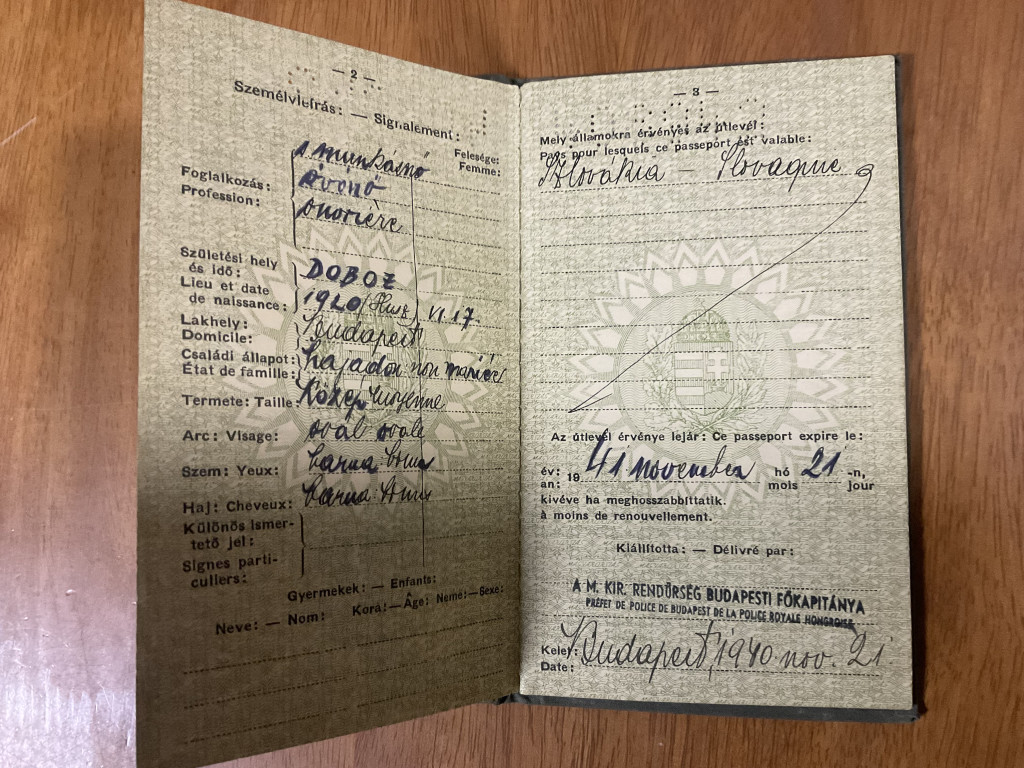 — 2 —
Személyleírás: — Signalement:
Felesége:
Femme:
Foglalkozás:
Profession:
munkásnő
óvónő
ouvrière
Születési hely
és idő:
Lieu et date
de naissance:
DOBOZ
1920 VI. 17.
Lakhely:
Domicile:
Budapest
Családi állapot:
État de famille:
hajadon non mariée
Termete: Taille:
közép moyenne
Arc: Visage:
ovál ovale
Szem: Yeux:
barna brun
Haj: Cheveux:
barna bruns
Különös ismer-
tető jel:
Signes parti-
culiers:
Gyermekek: — Enfants:
Neve: — Nom: Kora: — Âge: Neme: — Sexe:
— 3 —
Mely államokra érvényes az útlevél:
Pays pour lesquels ce passeport est valable:
Szlovákia — Slovaquie
Az útlevél érvénye lejár: Ce passeport expire le:
év: 19 41 november hó 21 -n,
an: mois jour
kivéve ha meghosszabbíttatik.
à moins de renouvellement.
Kiállította: — Délivré par:
A M. KIR. RENDŐRSÉG BUDAPESTI FŐKAPITÁNYA
PRÉFET DE POLICE DE BUDAPEST DE LA POLICE ROYALE HONGROISE
Kelet:
Date:
Budapest, 1940 nov. 21